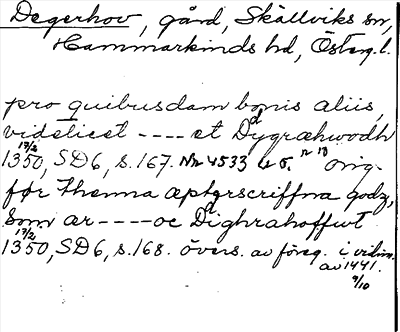 Degerhov, gård, Skällviks sn,
Hammarkinds hd, Östag.l.
pro quibusdam bonis aliis,
videlicet ---- et Dygræhwodh
17/2 1350, SD6, s. 167. Nr 4533 orig.
før thenna æpterscriffna godz,
Som ær ---- oc Dighrahoffwt
17/2 1350, SD6, s. 168. övers. av föreg. i vidim.
av 1441.
9/10